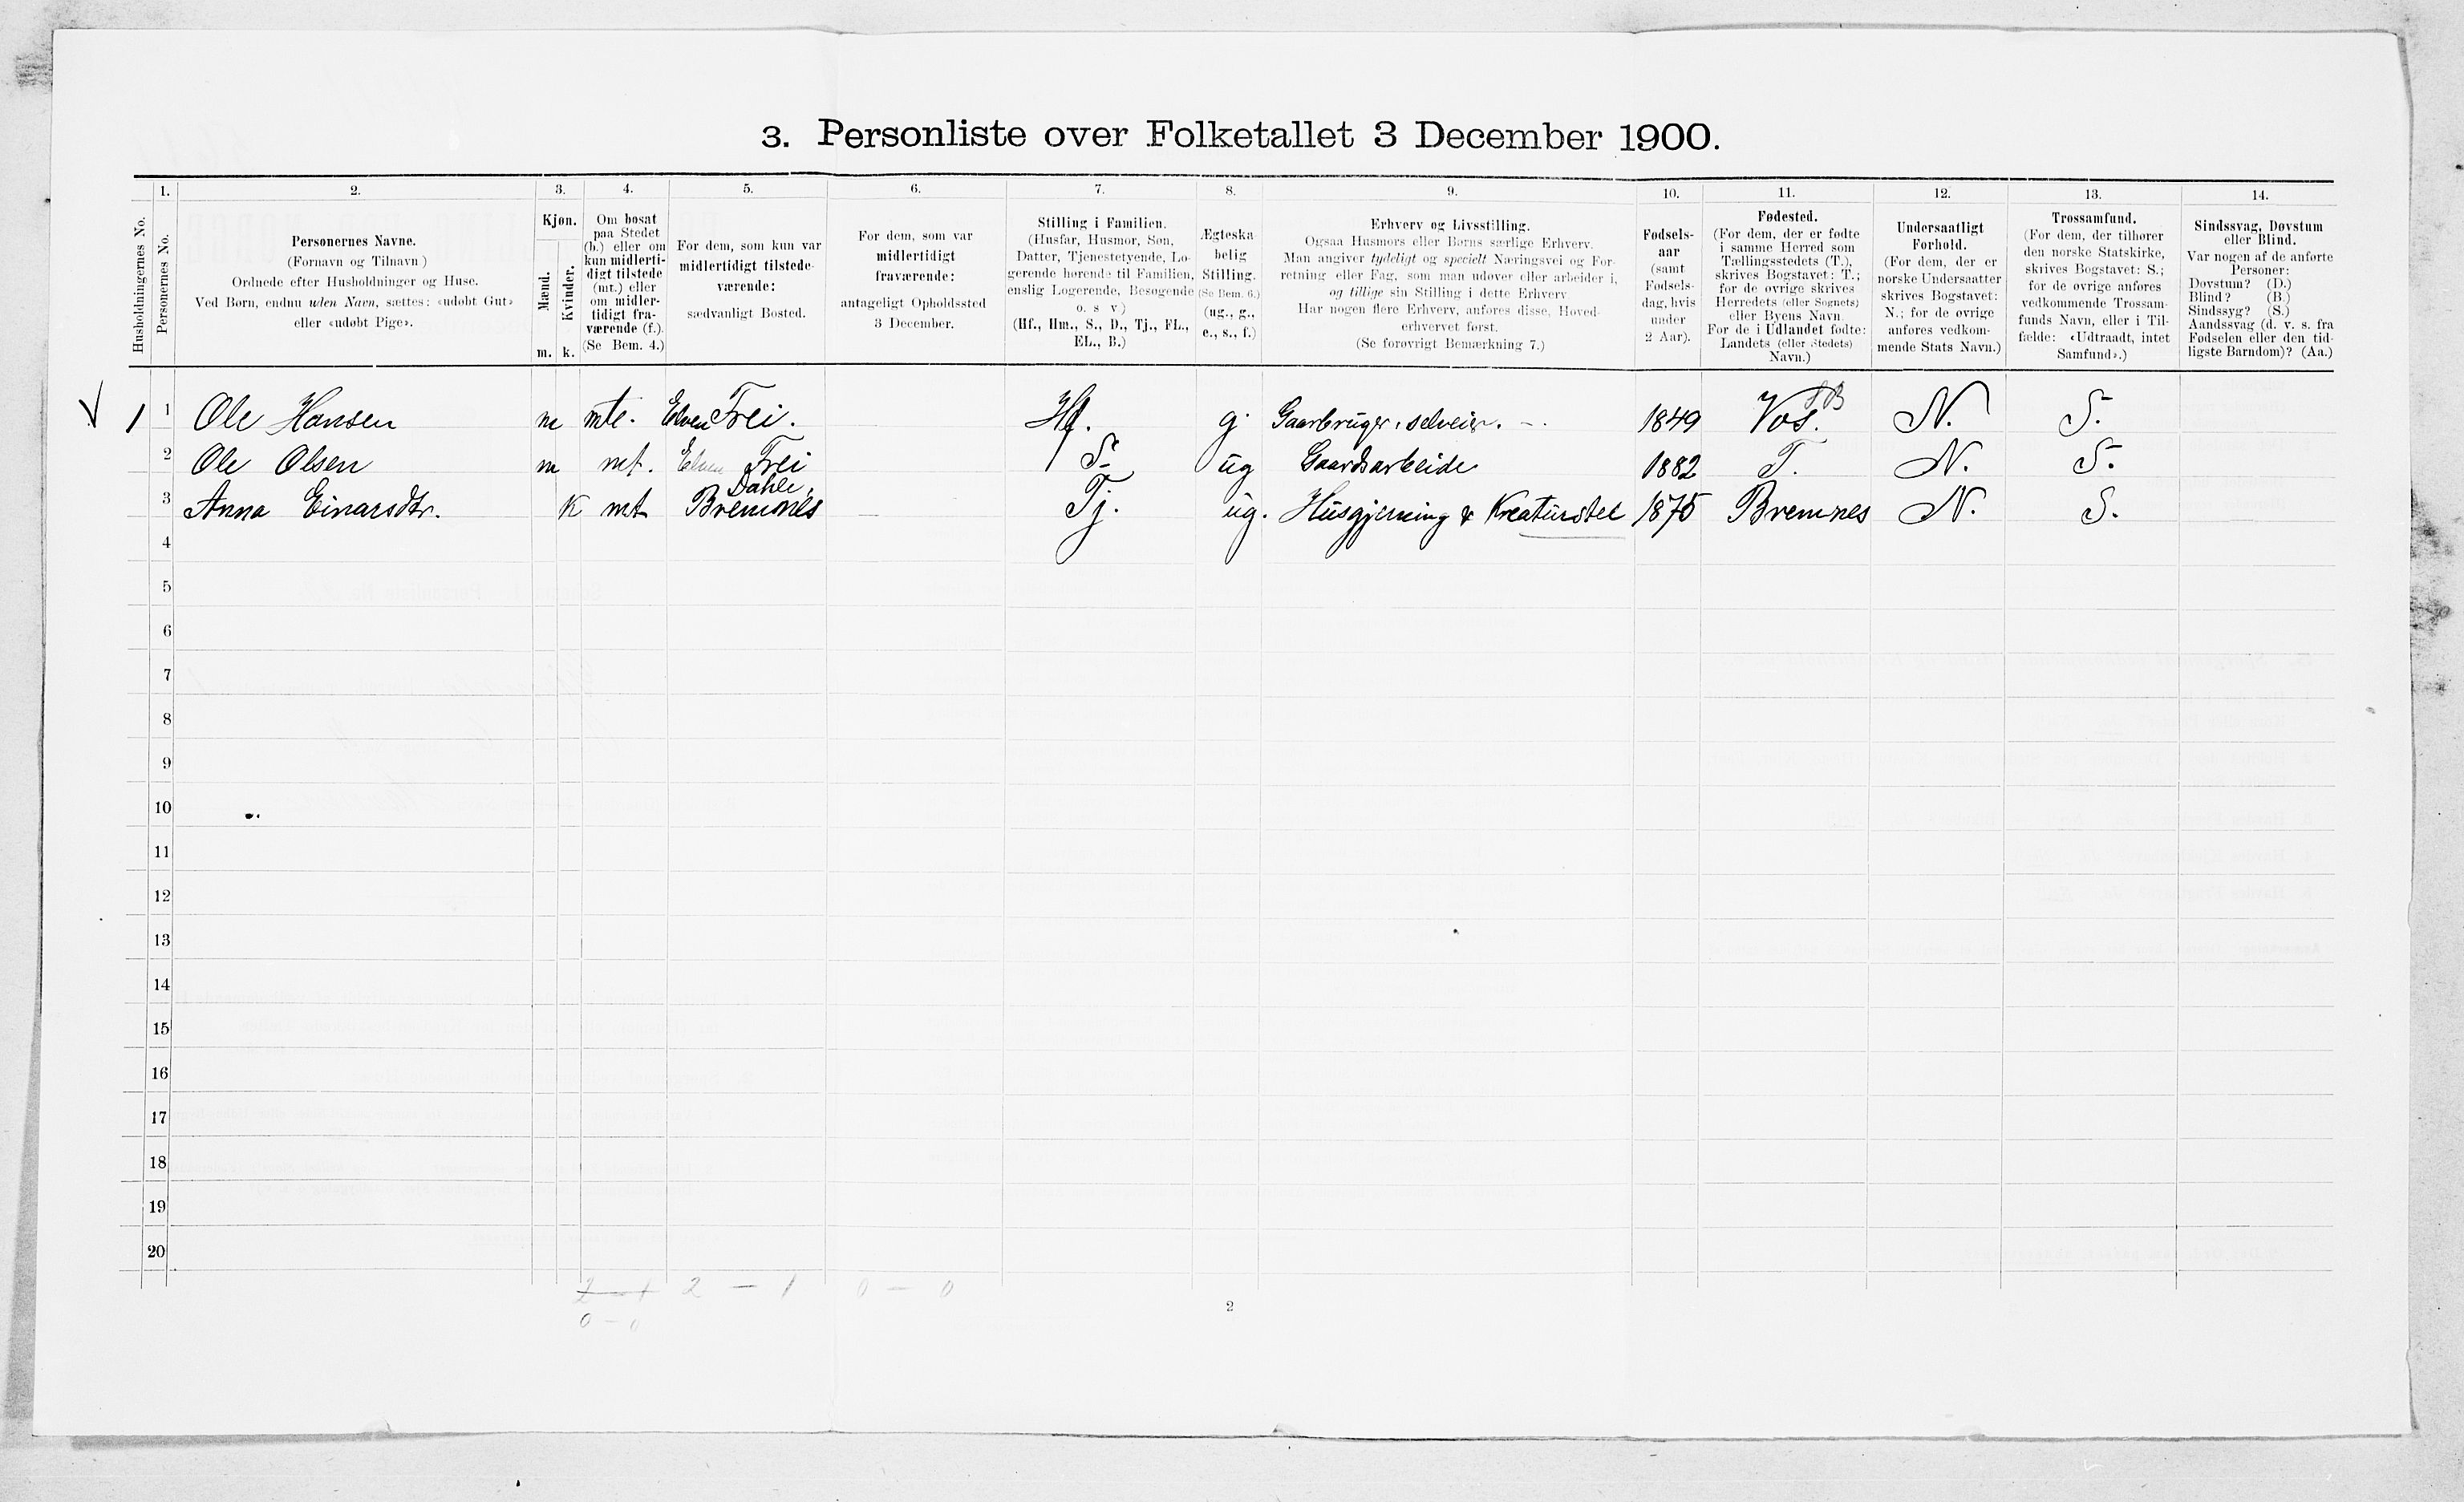 3. Personliste over Folketallet 3 December 1900.
Husholdningernes No.
1. Personernes No.
2. Personernes Navne.
(Fornavn og Tilnavn)
Ordnede efter Husholdninger og Huse.
Ved Børn, endnu uden Navn, sættes: «udøbt Gut»
eller «udøbt Pige».
3. Kjøn.
Mænd. m.
Kvinder. k.
4. Om bosat
paa Stedet
(b.) eller om
kun midlerti-
digt tilstede
(mt.) eller
om midler-
tidigt fra-
værende (f.).
(Se Bem. 4.)
5. For dem, som kun var
midlertidigt tilstede-
værende:
sædvanligt Bosted.
6. For dem, som var
midlertidigt
fraværende:
antageligt Opholdssted
3 December.
7. Stilling i Familien.
(Husfar, Husmor, Søn,
Datter, Tjenestetyende, Lo-
gerende hørende til Familien,
enslig Logerende, Besøgende
o. s v)
(Hf., Hm., S., D., Tj., FL.,
EL., B.)
8. Ægteska
belig
Stilling.
(Se Bem. 6.)
(ug., g.,
e., s., f.)
9. Erhverv og Livsstilling.
Ogsaa Husmors eller Børns særlige Erhverv.
Man angiver tydeligt og specielt Næringsvei og For-
retning eller Fag, som man udøver eller arbeider i,
og tillige sin Stilling i dette Erhverv.
Har nogen flere Erhverv, anføres disse, Hoved-
erhvervet først.
(Se forøvrigt Bemærkning 7.)
10. Fødsels-
aar
(samt
Fødsels-
dag, hvis
under
2 Aar).
11. Fødested.
(For dem, der er fødte
i samme Herred som
Tællingsstedets (T.),
skrives Bogstavet: T.;
for de øvrige skrives
Herredets (eller Sognets)
eller Byens Navn.
For de i Udlandet fødte:
Landets (eller Stedets)
Navn.)
12. Undersaatligt
Forhold.
(For dem, der er
norske Undersaatter
skrives Bogstavet:
N.; for de øvrige
anføres vedkom-
mende Stats Navn.)
13. Trossamfund.
(For dem, der tilhører
den norske Statskirke,
skrives Bogstavet: S.;
for de øvrige anføres
vedkommende Trossam-
funds Navn, eller i Til-
fælde: «Udtraadt, intet
Samfund».)
14. Sindssvag, Døvstum
eller Blind.
Var nogen af de anførte
Personer:
Døvstum? (D.)
Blind? (B.)
Sindssyg? (S.)
Aandssvag (d. v. s. fra
Fødselen eller den tid-
ligste Barndom)? (Aa.)
1 1 Ole Hansen m mte. Elven Frei. Hf. g. Gaarbruger, selveier. 1849 Vos. SB N. S.
2 Ole Olsen m mt. Elven Frei S. ug Gaardsarbeide 1882 T. N. S.
Dahle,
3 Anna Einarsdtr. k mt Bremnes Tj. ug. Husgjerning & Kreaturstel 1875 Bremnes N. S.
4
5
6
7
8
9
10
11
12
13
14
15
16
17
18
19
20
2 – 1 2 – 1 0 – 0
0 – 0
2